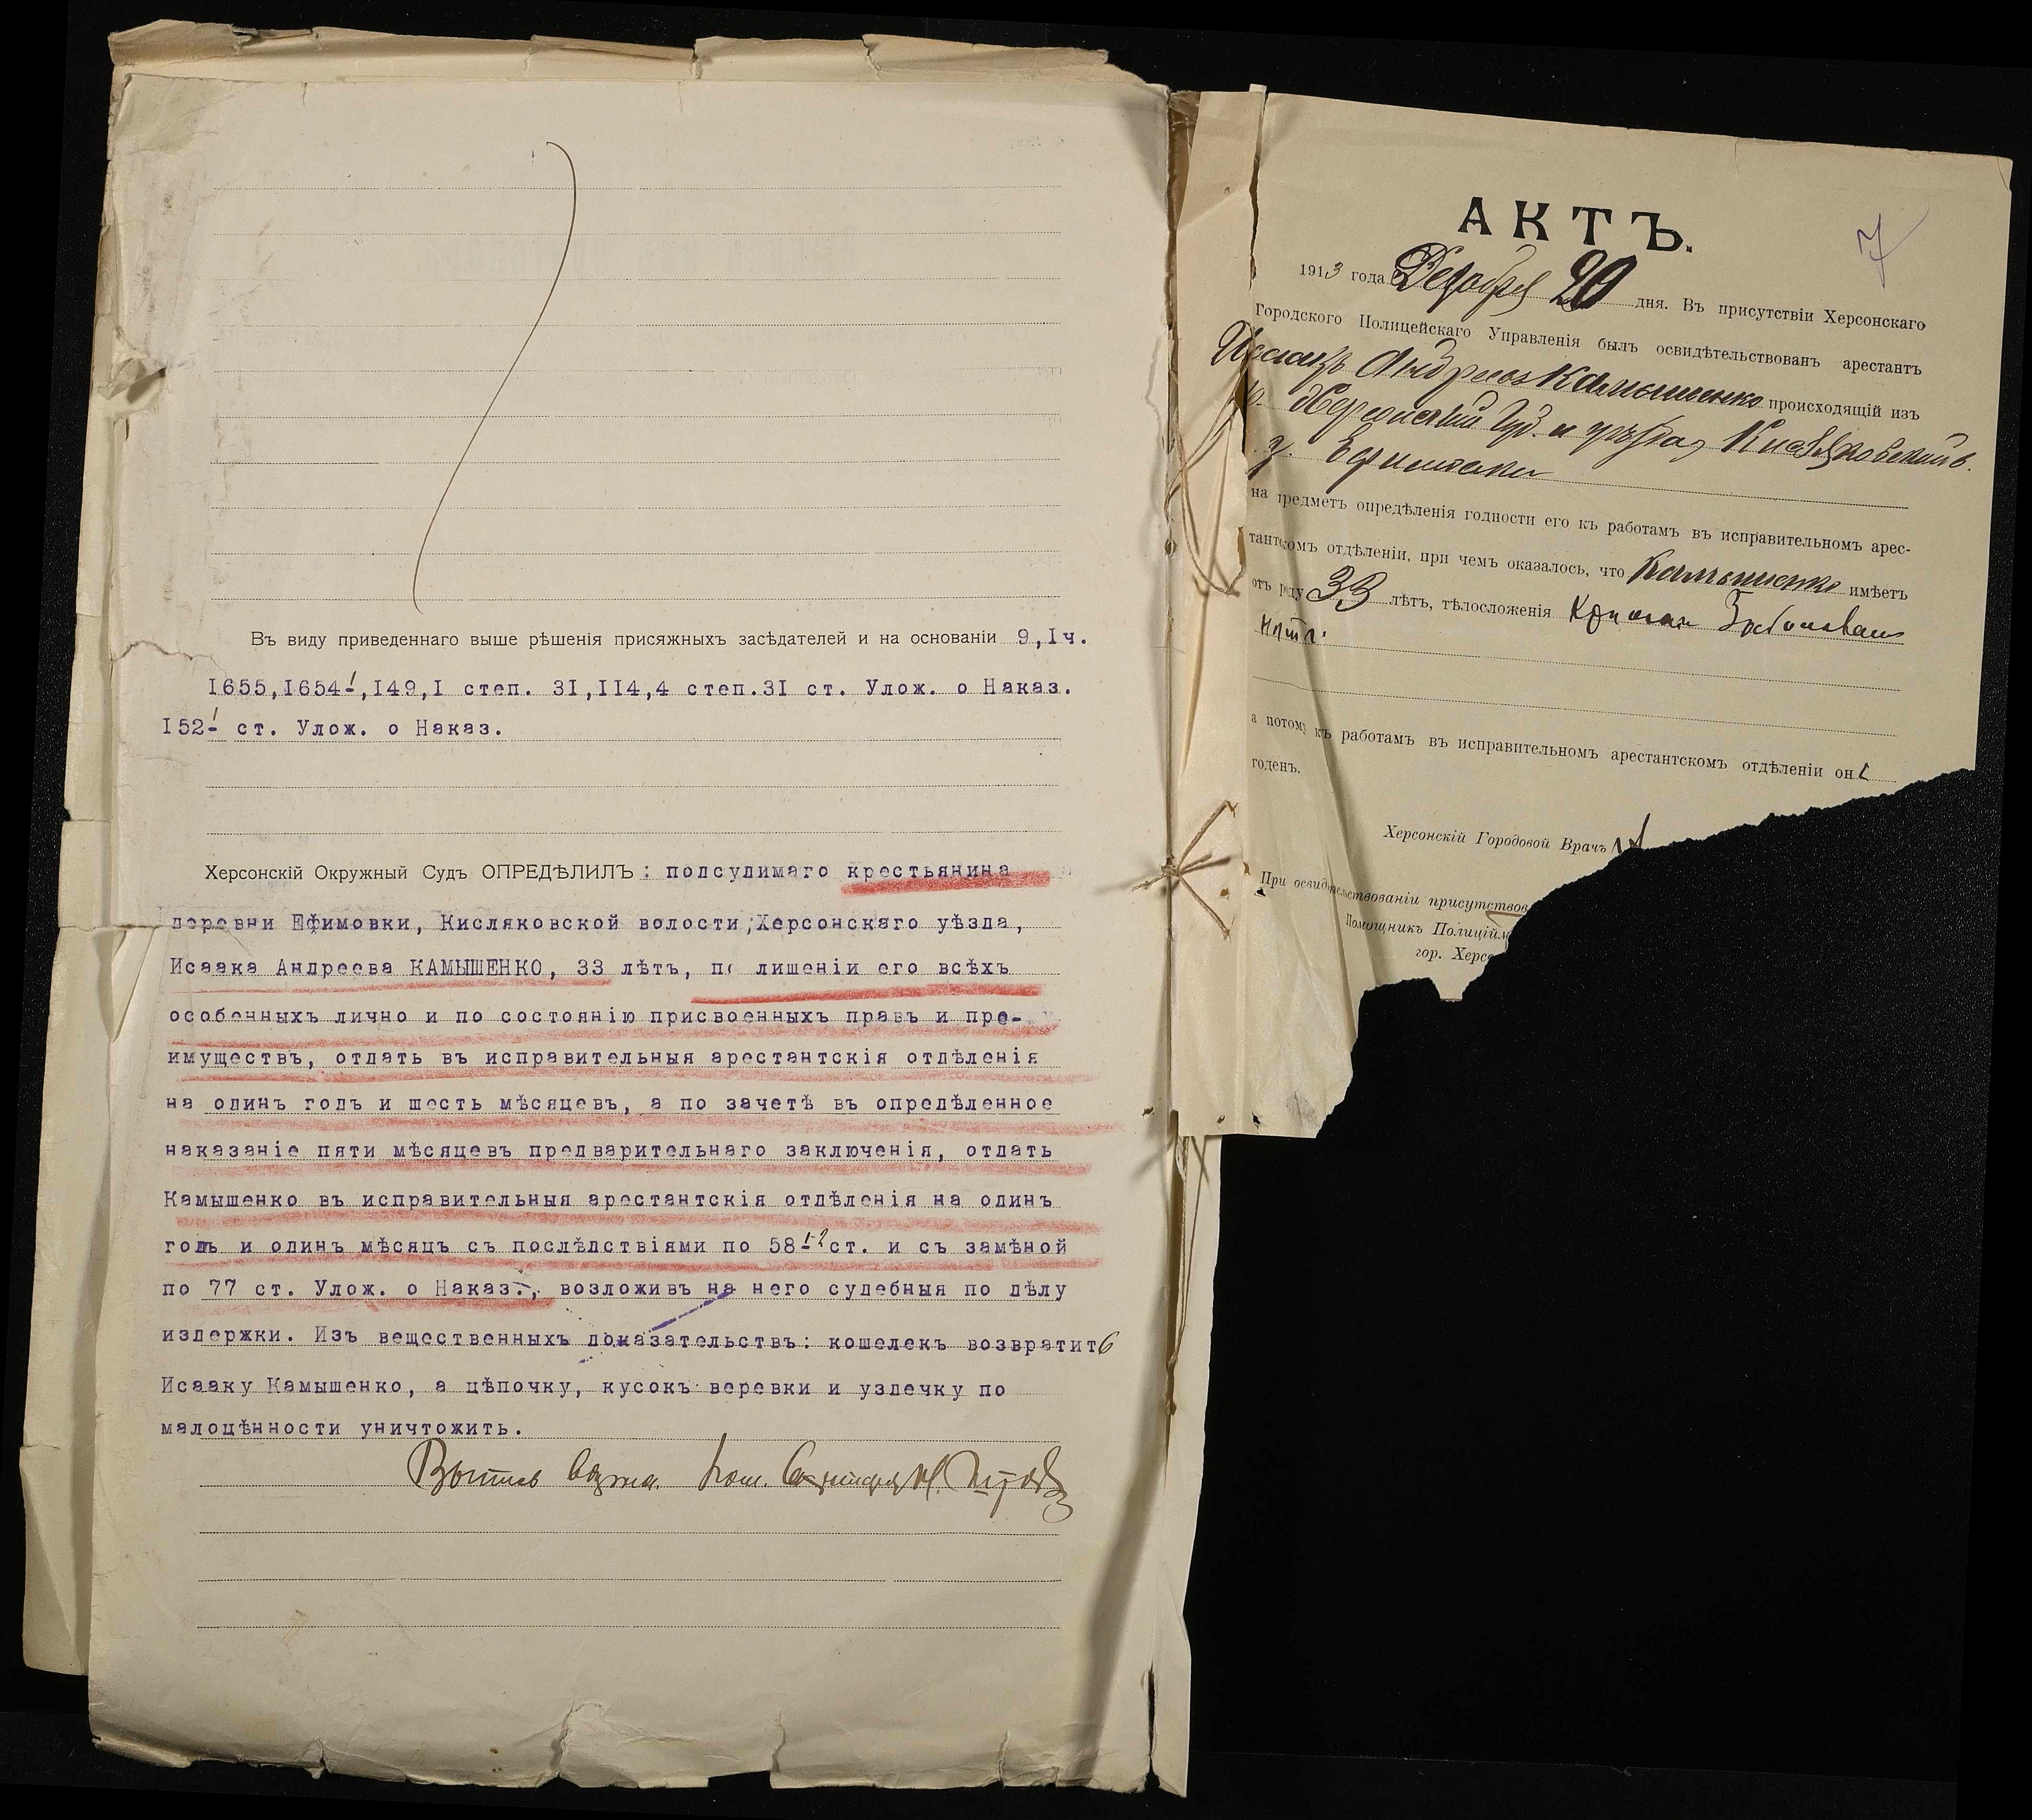 Въ виду приведеннаго выше рѣшенія присяжныхъ засѣдателей и на основаніи 9,Iч.
I655,I654¹,I49,I степ. 3I,II4,4 степ.3I ст. Улож. о Наказ.
I52¹ ст. Улож. о Наказ.
Херсонскій Окружный Судъ ОПРЕДѢЛИЛЪ: подсудимаго крестьянина
деревни Ефимовки, Кисляковской волости,Херсонскаго уѣзда,
Исаака Андреева КАМЫШЕНКО, 33 лѣтъ, по лишеніи его всѣхъ
особенныхъ лично и по состоянію присвоенныхъ правъ и пре-
имуществъ, отдать въ исправительныя арестантскія отдѣленія
на одинъ годъ и шесть мѣсяцевъ, а по зачетѣ въ опредѣленное
наказаніе пяти мѣсяцевъ предварительнаго заключенія, отдать
Камышенко въ исправительныя арестантскія отдѣленія на одинъ
годъ и одинъ мѣсяцъ съ послѣдствіями по 58¹⁻² ст. и съ замѣной
по 77 ст. Улож. о Наказ., возложивъ на него судебныя по дѣлу
издержки. Изъ вещественныхъ доказательствъ: кошелекъ возвратить
Исааку Камышенко, а цѣпочку, кусокъ веревки и уздечку по
малоцѣнности уничтожить.
Пом. Секретаря
7
АКТЪ.
1913 года Декабря 20 дня. Въ присутствіи Херсонскаго
Городского Полицейскаго Управленія былъ освидѣтельствованъ арестантъ
Исаакъ Андреевъ Камышенко происходящій изъ
Херсонской Губ. и уѣзда, Кисляковской в.
на предметъ опредѣленія годности его къ работамъ въ исправительномъ арес-
тантскомъ отдѣленіи, при чемъ оказалось, что Камышенко имѣетъ
отъ роду 33 лѣтъ, тѣлосложенія
а потому къ работамъ въ исправительномъ арестантскомъ отдѣленіи он
годенъ.
Херсонскій Городовой Врачъ
При освидѣтельствованіи присутствов
Помощникъ Полиційм
гор. Херсо